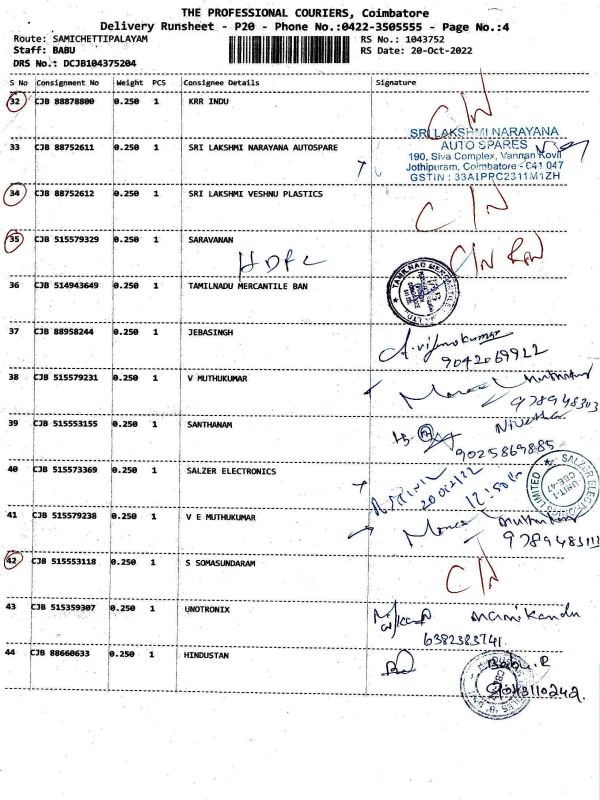 THE PROFESSIONAL COURIERS, Coimbatore
Delivery Runsheet - P20 - Phone No.:0422-3505555 - Page No.:4
Route: SAMICHETTIPALAYAM RS No.: 1043752
Staff: BABU RS Date: 20-Oct-2022
DRS No.: DCJB104375204
S No Consignment No Weight PCS Consignee Details Signature
32 CJB 88878800 0.250 1 KRR INDU C/N
SRI LAKSHMI NARAYANA
33 CJB 88752611 0.250 1 SRI LAKSHMI NARAYANA AUTOSPARE AUTO SPARES
190, Siva Complex, Vannan Kovil
Jothipuram, Coimbatore - 641 047
GSTIN : 33AIPRC2311M1ZH
34 CJB 88752612 0.250 1 SRI LAKSHMI VESHNU PLASTICS C/N
35 CJB 515579329 0.250 1 SARAVANAN C/N
HDFC
36 CJB 514943649 0.250 1 TAMILNADU MERCANTILE BAN
37 CJB 88958244 0.250 1 JEBASINGH
9042069922
38 CJB 515579231 0.250 1 V MUTHUKUMAR
39 CJB 515553155 0.250 1 SANTHANAM
9025869885
40 CJB 515573369 0.250 1 SALZER ELECTRONICS 20/10/22 12:50
SALZER ELECTRONICS LIMITED
UNIT-1
CBE-47
41 CJB 515579238 0.250 1 V E MUTHUKUMAR
42 CJB 515553118 0.250 1 S SOMASUNDARAM C/N
43 CJB 515359307 0.250 1 UNOTRONIX Manikandan
6382383741
44 CJB 88660633 0.250 1 HINDUSTAN Babu.R